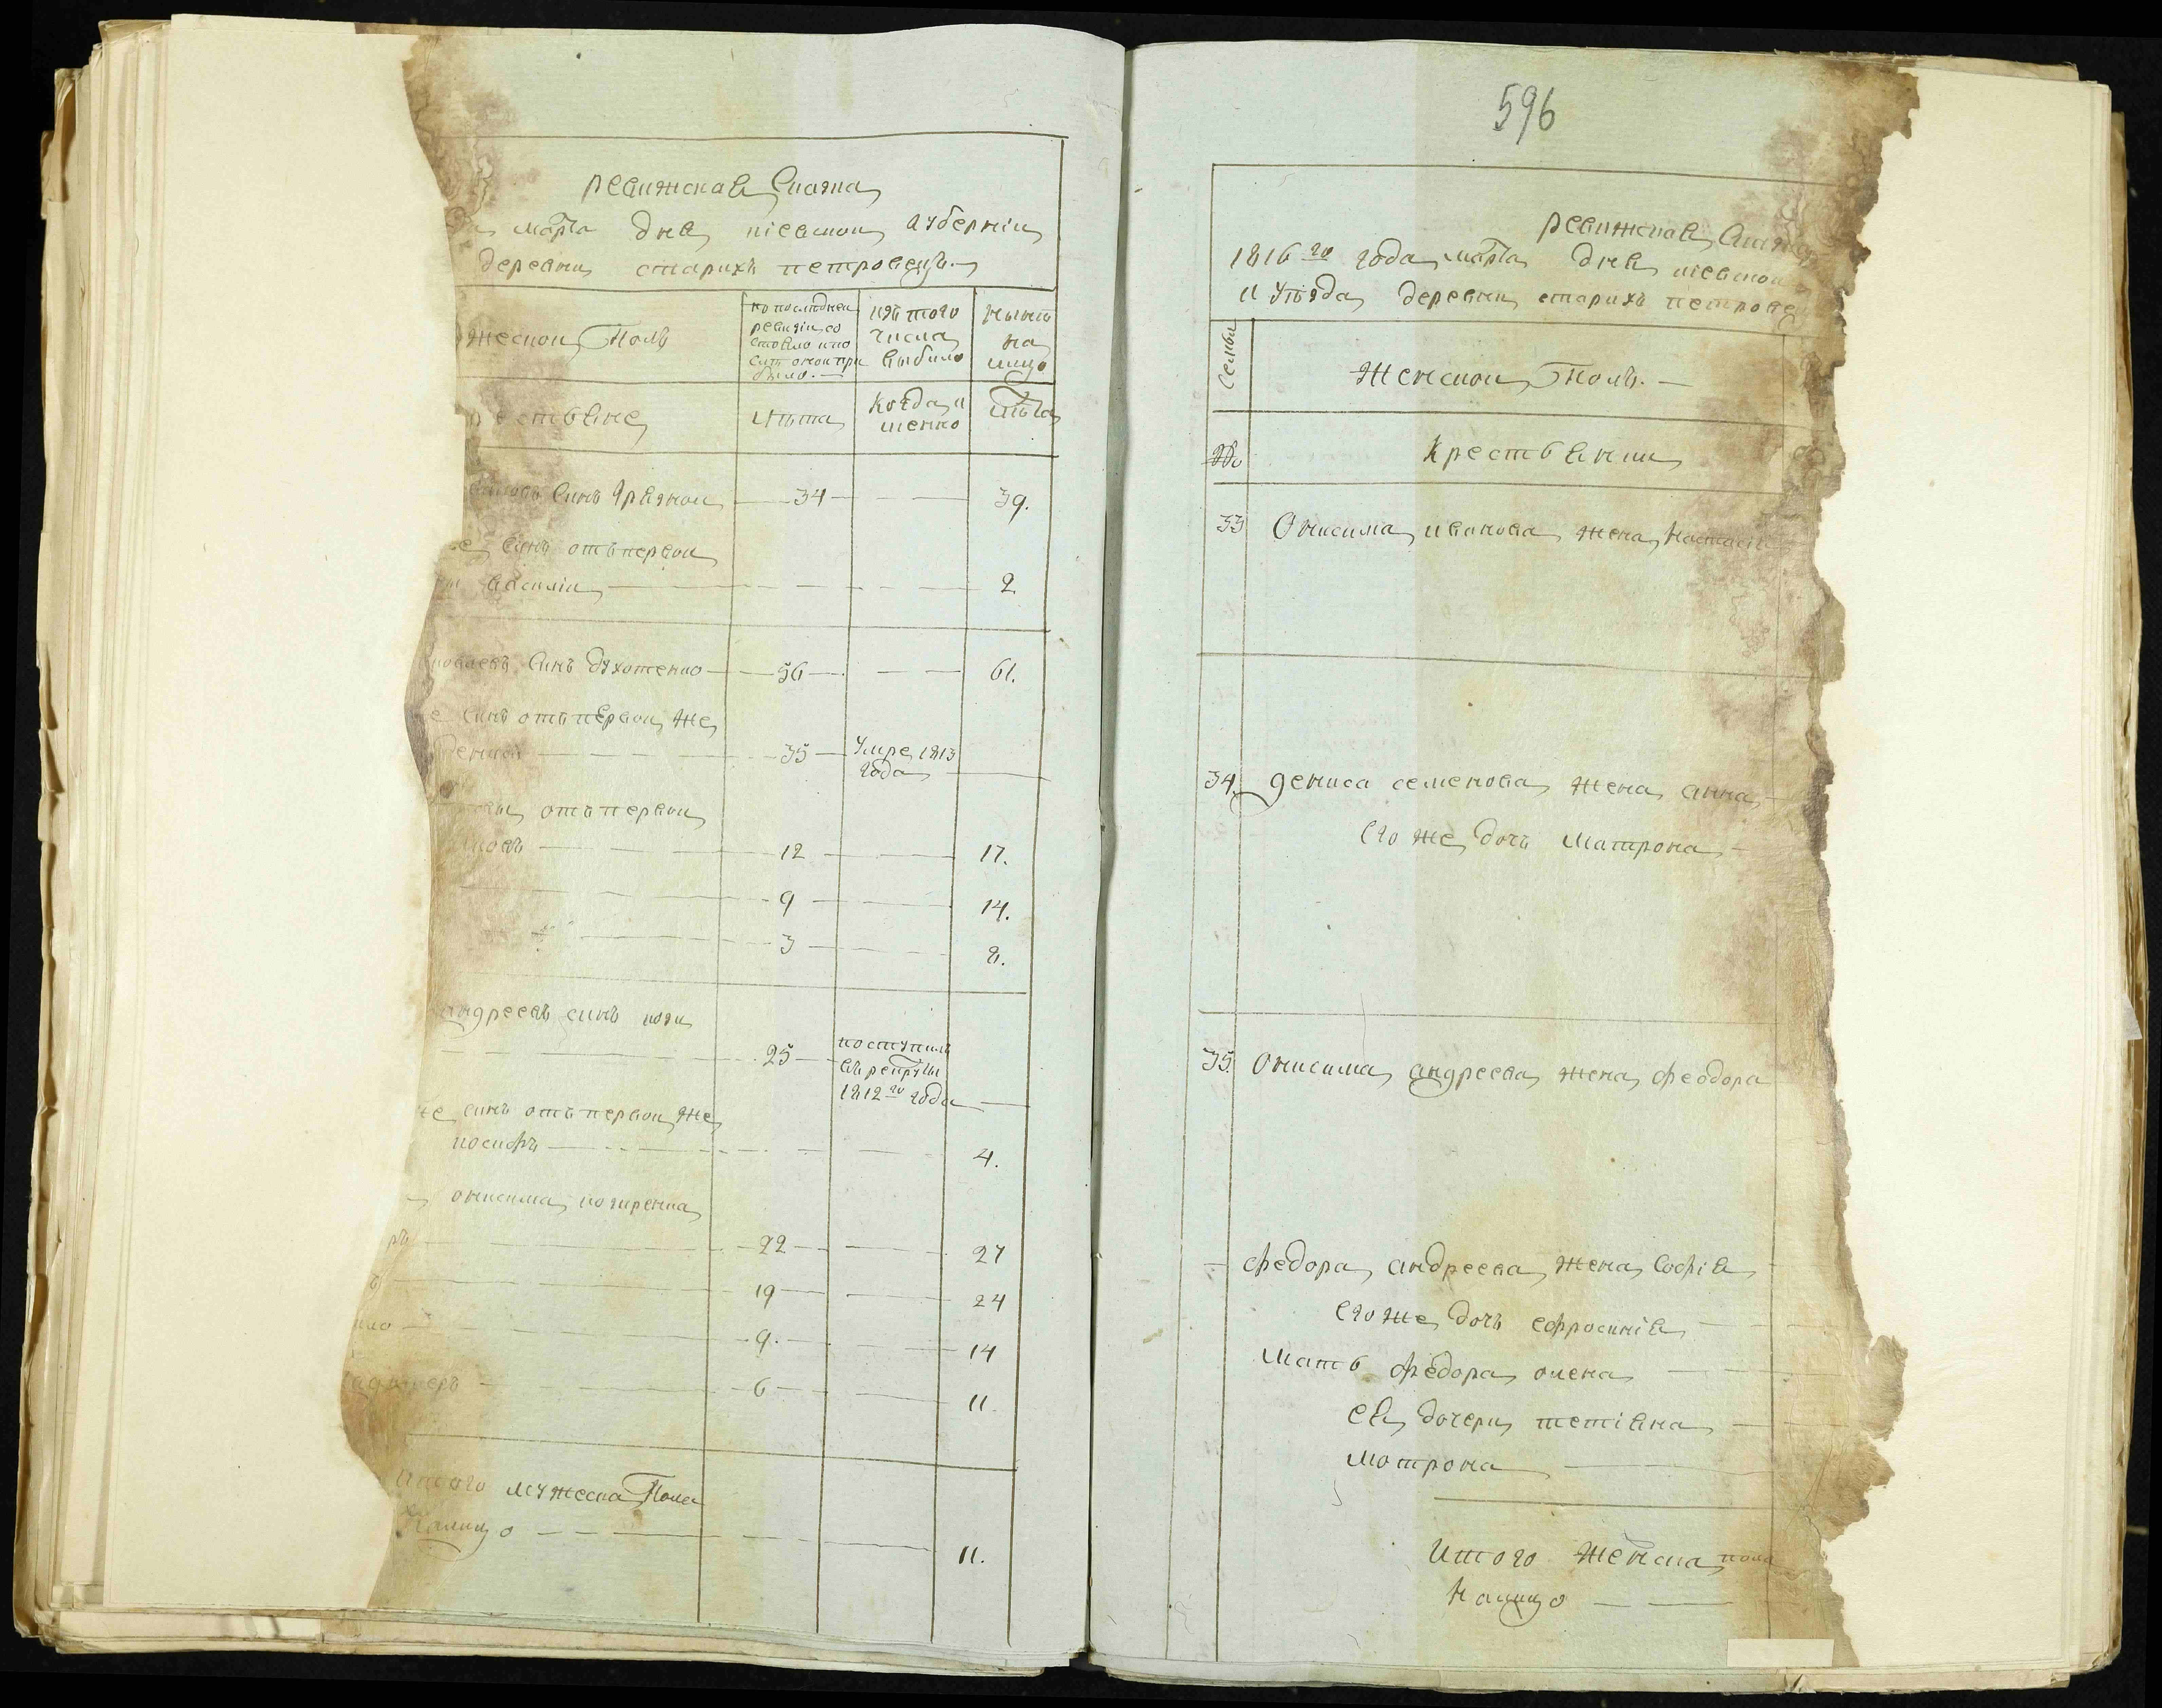 ревижская сказка
марта дня киевской губернии
деревни старихъ петровецъ
жескои Полъ
по последнеи
ревизіи со
стояло и по
слѣ онои при
было.
изъ того
числа
выбило
нынѣ
на
лицо
естьяне
лѣта
когда и
менно
лѣта
синъ Грязнои 34 39.
синъ отъ первои
василіи 2
синъ духотенко 56 61.
е синъ отъ первои же
35 Умре 1813
года
отъ первои
12 17.
9 14.
3 8.
андреевъ синъ кози
25 поступилъ
въ рекруты
1812го года
же синъ отъ первои же
иосифъ 4.
онисима козиренка
ръ 22 27
ъ 19 24
ло 9. 14
6 11
Итого мужеска Пола
Налицо 11.
596
ревижская Сказка
1816го года марта дня киевскои
и уѣзда деревни старихъ петрове
Семьи
Женскои Полъ.
№
Крестьянки
33 Онисима иванова жена Настасія
34. дениса семенова жена анна
Его же дочь матрона
35. Онисима андреева жена феодора
федора андреева жена Софія
Его же дочь ефросинія
мать федора олена
ея дочери тетіяна
мотрона
Итого женска пола
Налицо